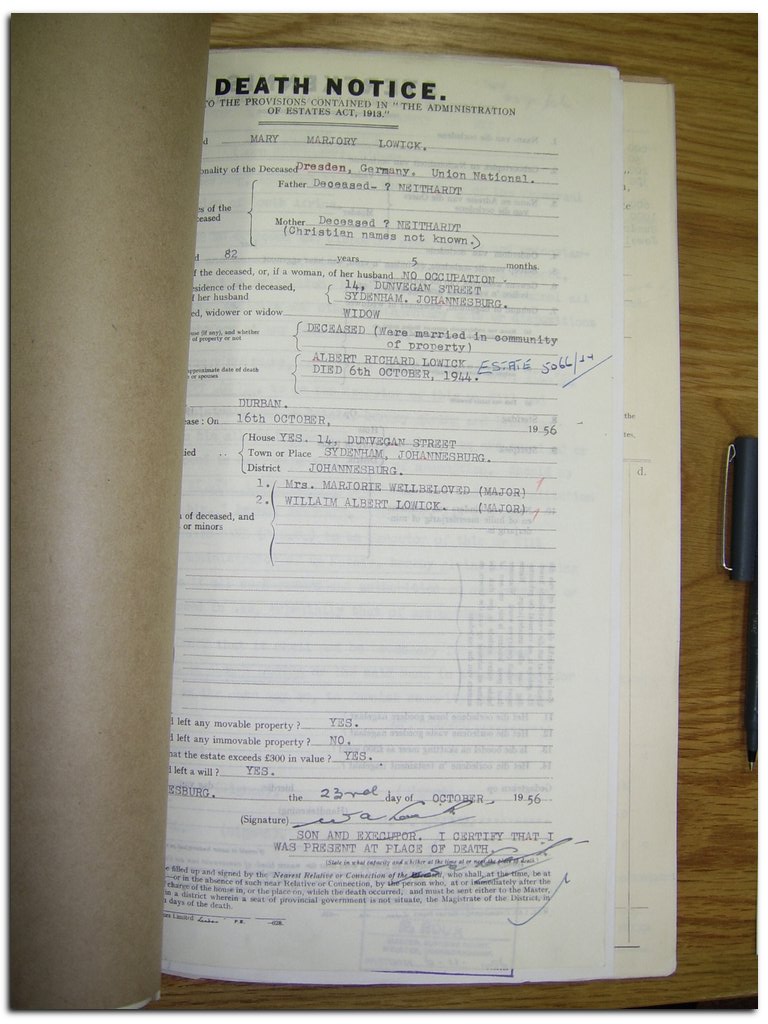 DEATH NOTICE.
TO THE PROVISIONS CONTAINED IN "THE ADMINISTRATION
OF ESTATES ACT, 1913."
d MARY MARJORY LOWICK.
onality of the Deceased Dresden, Germany. Union National.
Father Deceased- ? NEITHARDT
es of the
ceased
Mother Deceased ? NEITHARDT
(Christian names not known.)
d 82 years 5 months.
f the deceased, or, if a woman, of her husband NO OCCUPATION.
esidence of the deceased,
f her husband
14, DUNVEGAN STREET
SYDENHAM. JOHANNESBURG.
ed, widower or widow WIDOW
use (if any), and whether
of property or not
DECEASED (Were married in community
of property)
pproximate date of death
or spouses
ALBERT RICHARD LOWICK ESTATE 5066/44
DIED 6th OCTOBER, 1944.
DURBAN.
ease : On 16th OCTOBER, 1956
House YES. 14, DUNVEGAN STREET
ied .. Town or Place SYDENHAM, JOHANNESBURG.
District JOHANNESBURG.
1. Mrs. MARJORIE WELLBELOVED (MAJOR)
2. WILLAIM ALBERT LOWICK. (MAJOR)
n of deceased, and
or minors
d left any movable property ? YES.
d left any immovable property ? NO.
hat the estate exceeds £300 in value ? YES.
d left a will ? YES.
ESBURG. the 23rd day of OCTOBER 1956
(Signature)
SON AND EXECUTOR. I CERTIFY THAT I
WAS PRESENT AT PLACE OF DEATH
(State in what capacity and whether at the time at or near the place of death)
e filled up and signed by the Nearest Relative or Connection of the deceased, who shall, at the time, be at
—or in the absence of such near Relative or Connection, by the person who, at or immediately after the
charge of the house in, or the place on, which the death occurred, and must be sent either to the Master,
n a district wherein a seat of provincial government is not situate, the Magistrate of the District, in
days of the death.